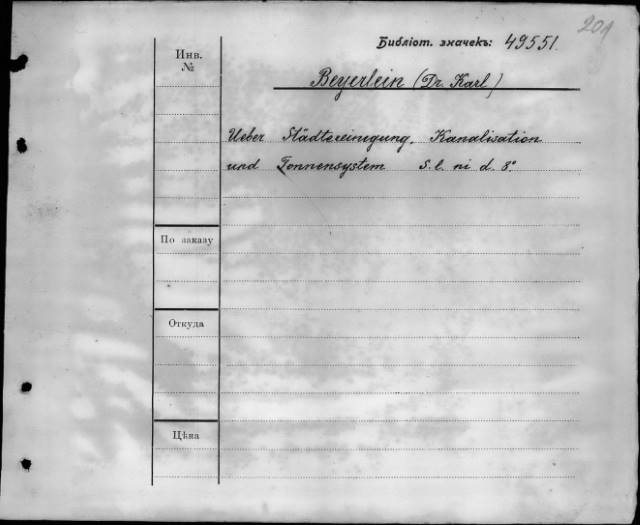 201
Библіот. значекъ: 49551.
Инв.
№
Beyerlein (Dr. Karl)
Ueber Städtereinigung, Kanalisation
und Tonnensystem S. l. ni d. 8°
По заказу
Откуда
Цѣна